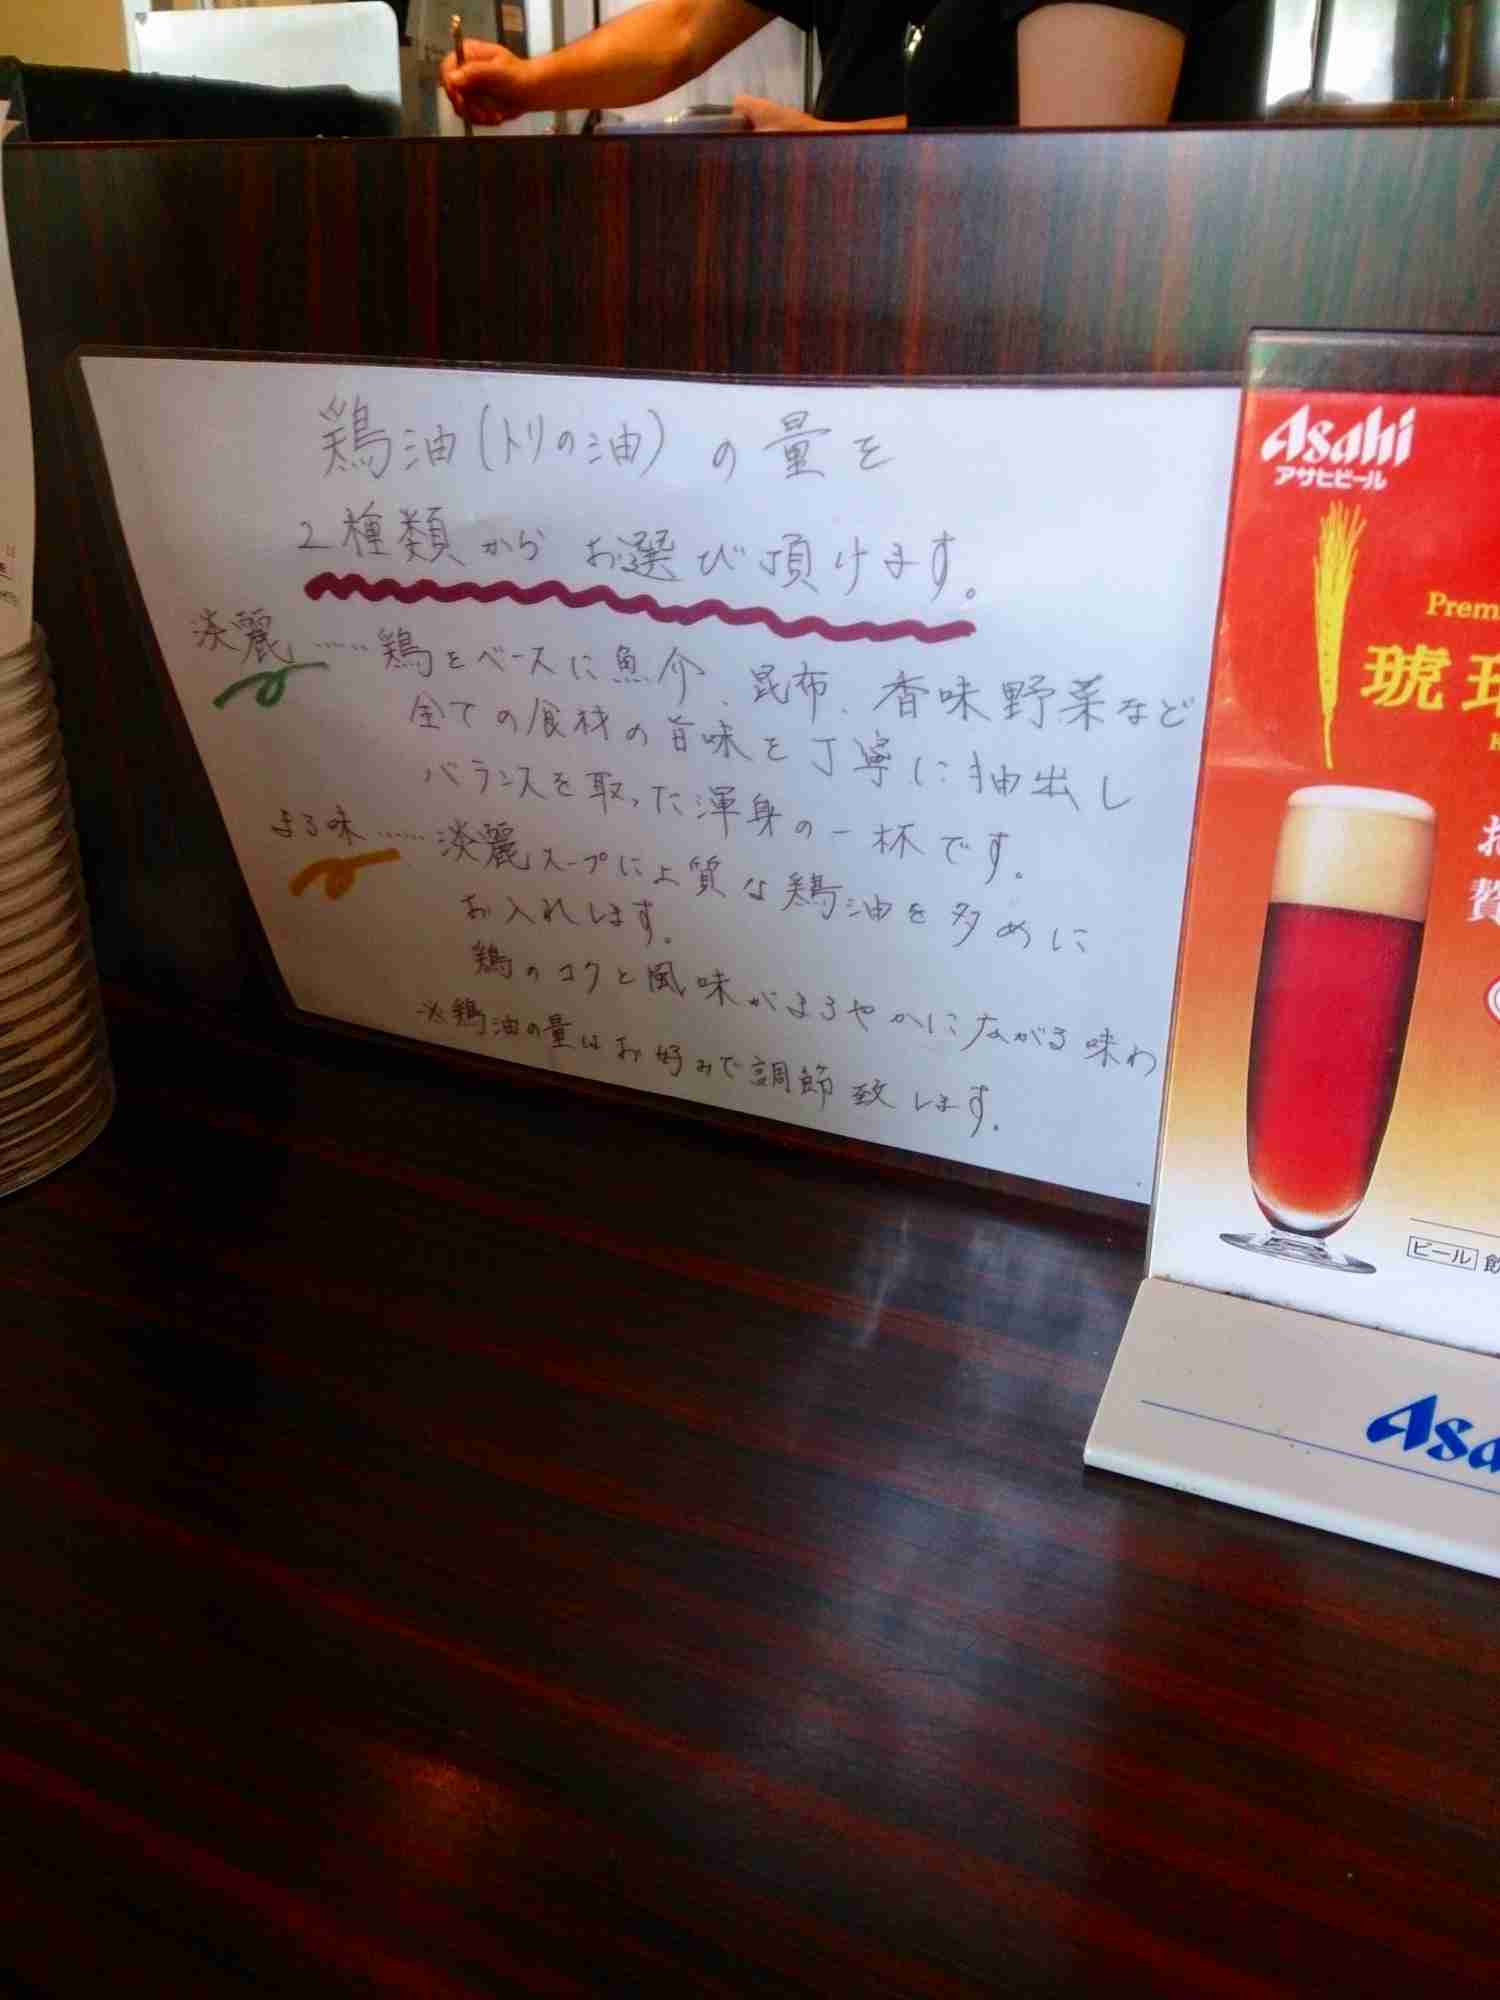 鶏油(トリの油)の量を
2種類からお選び頂けます。
淡麗……鶏をベースに魚介、昆布、香味野菜など
全ての食材の旨味を丁寧に抽出し
バランスを取った渾身の一杯です。
まる味……淡麗スープに上質な鶏油を多めに
お入れします。
鶏のコクと風味がまろやかに広がる味わ
※鶏油の量はお好みで調節致します。
Asahi
アサヒビール
Prem
琥
ビール 飲
Asa